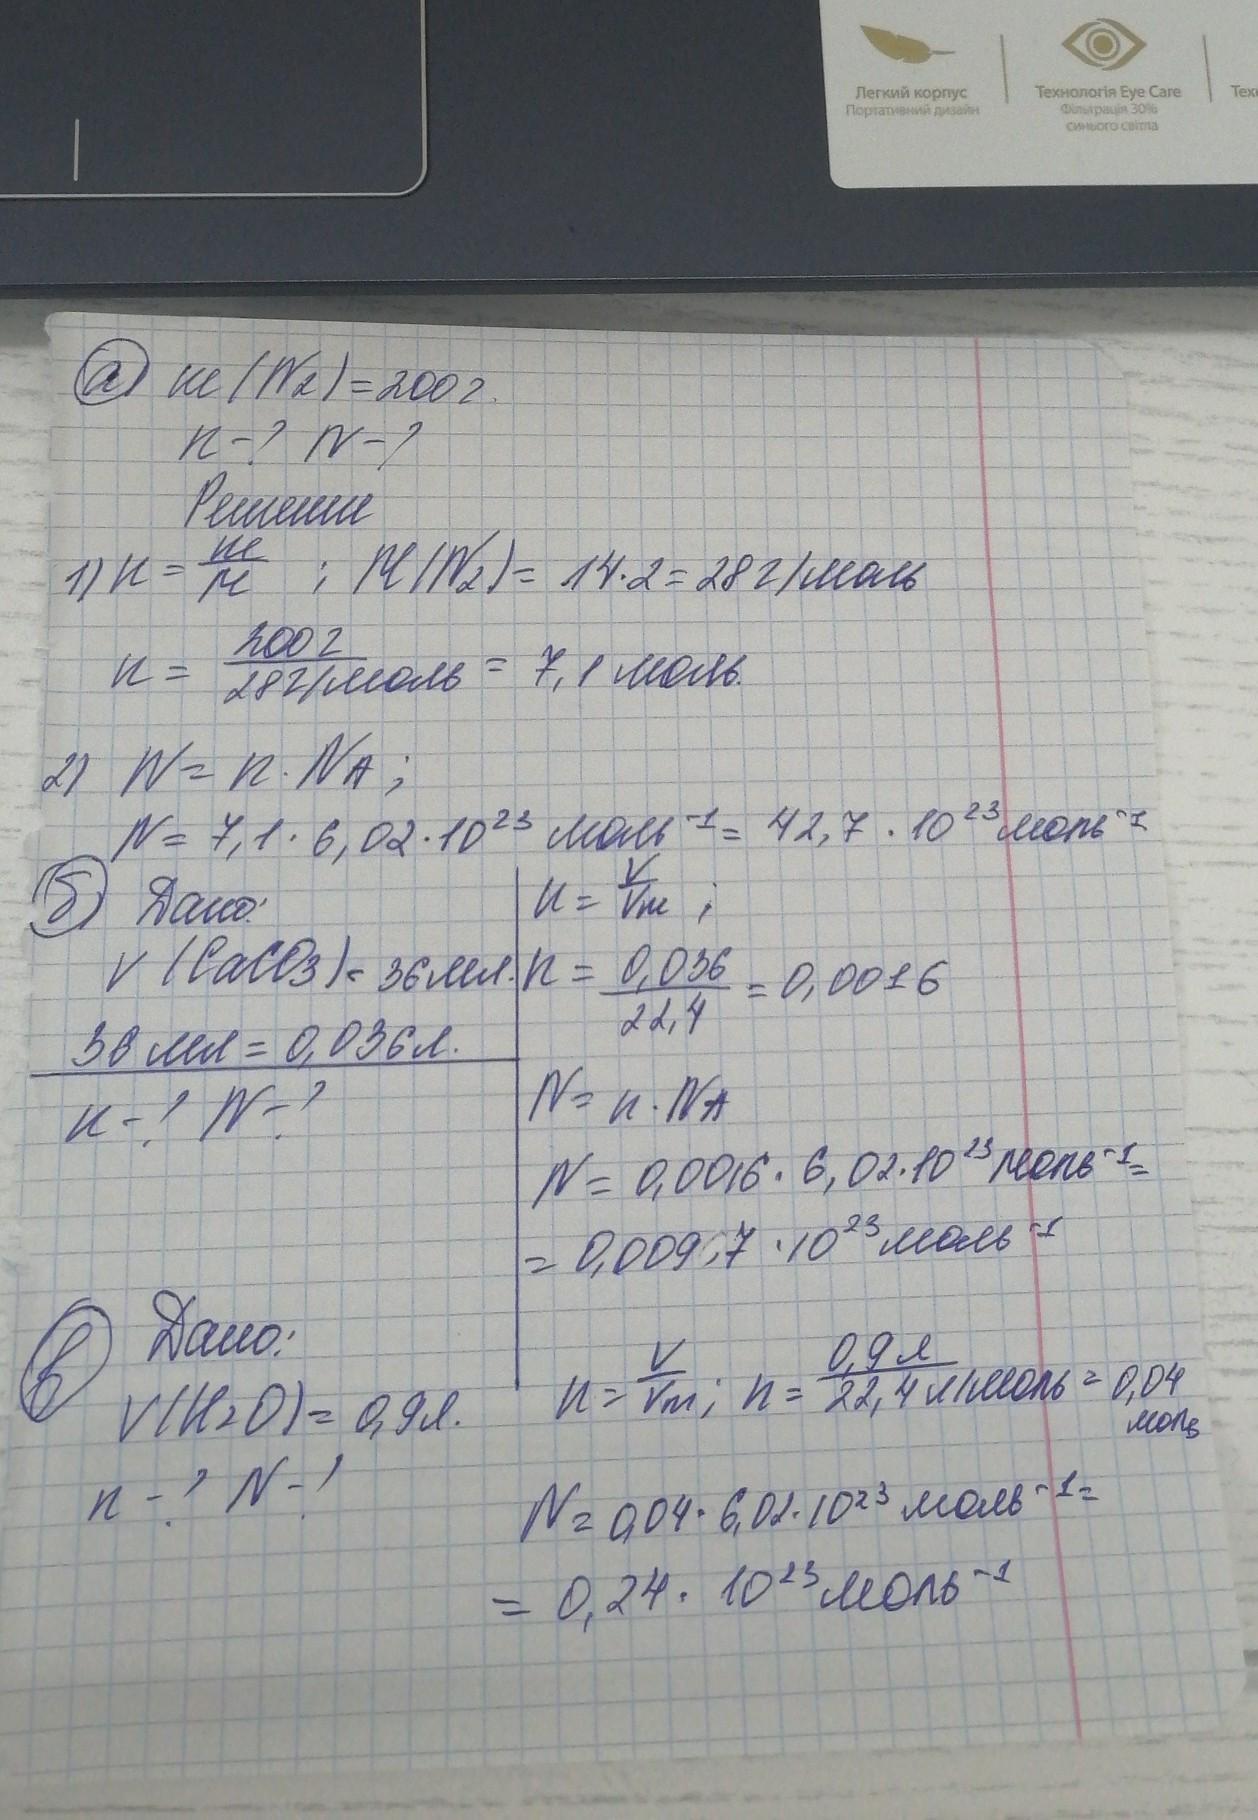 Легкий корпус
Портативний дизайн
Технологія Eye Care
Фільтрація 30%
синього світла
Техн
а) m(N₂)=200г.
n-? N-?
Решение
1) n = m/M ; M(N₂)= 14·2=28г/моль
n = 200г/28г/моль = 7,1 моль.
2) N = n·NA;
N= 7,1·6,02·10²³ моль⁻¹= 42,7·10²³моль⁻¹
б) Дано:
V(CaCO₃)= 36мл.
36 мл = 0,036л.
n-? N-?
n = V/Vm ;
n = 0,036/22,4 = 0,0016
N= n·NA
N= 0,0016·6,02·10²³моль⁻¹=
= 0,0097·10²³моль⁻¹
в) Дано:
V(H₂O)= 0,9л.
n-? N-?
n= V/Vm; n= 0,9л/22,4л/моль = 0,04
моль
N=0,04·6,02·10²³моль⁻¹=
= 0,24·10²³моль⁻¹